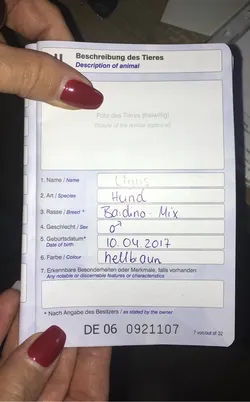 Beschreibung des Tieres
Description of animal
Foto des Tieres (freiwillig)
Picture of the animal (optional)
1. Name / Name
2. Art / Species Hund
3. Rasse / Breed * Bardino-Mix
4. Geschlecht / Sex ♂
5. Geburtsdatum* 10.04.2017
Date of birth
6. Farbe / Colour hellbaun
7. Erkennbare Besonderheiten oder Merkmale, falls vorhanden
Any notable or discernable features or characteristics
* Nach Angabe des Besitzers / as stated by the owner
DE 06 0921107
7 von/out of 32